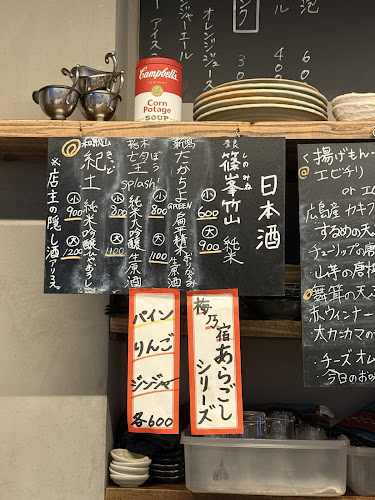 アイスコー
ジャーエール
オレンジジュース
300
ンク
ール
400
泡
600
Campbell's
Corn
Potage
SOUP
日本酒
しのみね
篠峯竹山 純米
小 600
大 900
新潟
たかちよ
GREEN 扁平精米 おりがらみ 生原酒
小 800
大 1100
栃木
七
Splash!
純米大吟醸 生原酒
小 800
大 1100
和歌山
きっど
紀土
純米大吟醸
小 900
大 1200
※店主の隠し酒アリマス。
梅乃宿あらごし
シリーズ
パイン
りんご
ジンジャー
各600
〈揚げもん・
エビチリ
or エ
広島産 カキフ
するめの天
チューリップの唐
山芋の唐揚
舞茸の天ぷ
赤ウィンナー
太カニカマの
・チーズオム
今日のお